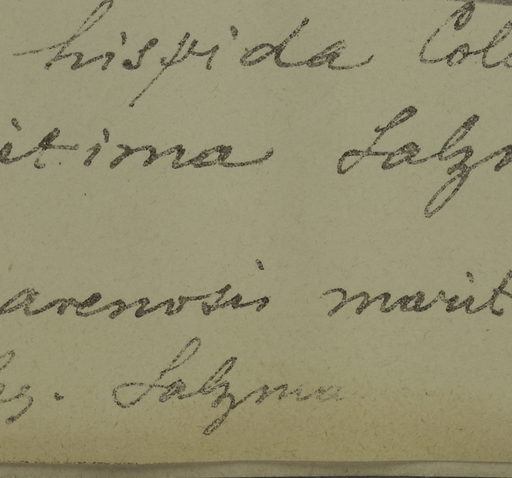 hispida Col
itima Salzm
arenosis marit
eg. Salzma